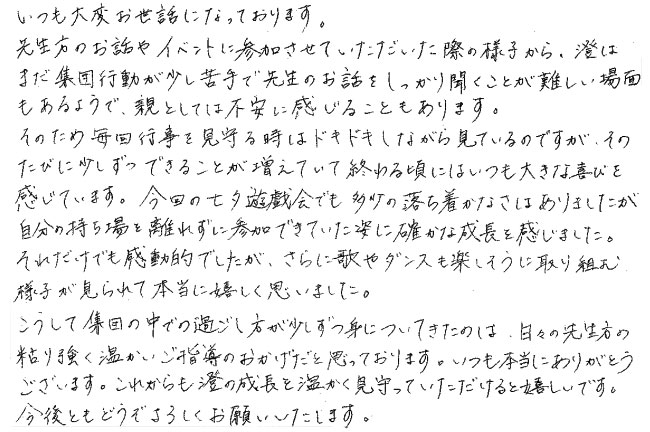 いつも大変お世話になっております。
先生方のお話やイベントに参加させていただいた際の様子から、澄は
まだ集団行動が少し苦手で先生のお話をしっかり聞くことが難しい場面
もあるようで、親としては不安に感じることもあります。
そのため毎回行事を見守る時はドキドキしながら見ているのですが、その
たびに少しずつできることが増えていて終わる頃にはいつも大きな喜びを
感じています。今回の七夕遊戯会でも多少の落ち着かなさはありましたが
自分の持ち場を離れずに参加できていた姿に確かな成長を感じました。
それだけでも感動的でしたが、さらに歌やダンスも楽しそうに取り組む
様子が見られて本当に嬉しく思いました。
こうして集団の中での過ごし方が少しずつ身についてきたのは、日々の先生方の
粘り強く温かいご指導のおかげだと思っております。いつも本当にありがとう
ございます。これからも澄の成長を温かく見守っていただけると嬉しいです。
今後ともどうぞよろしくお願いいたします。